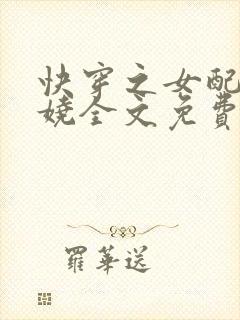 快穿之女配
娆全文免费
罗华送